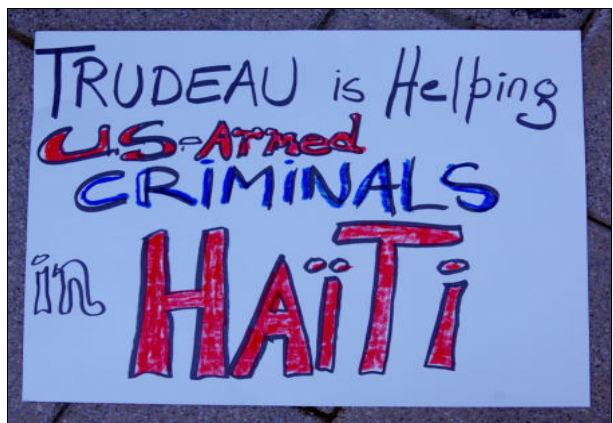 TRUDEAU is Helping
U.S-Armed
CRiMiNALS
in HAïTi